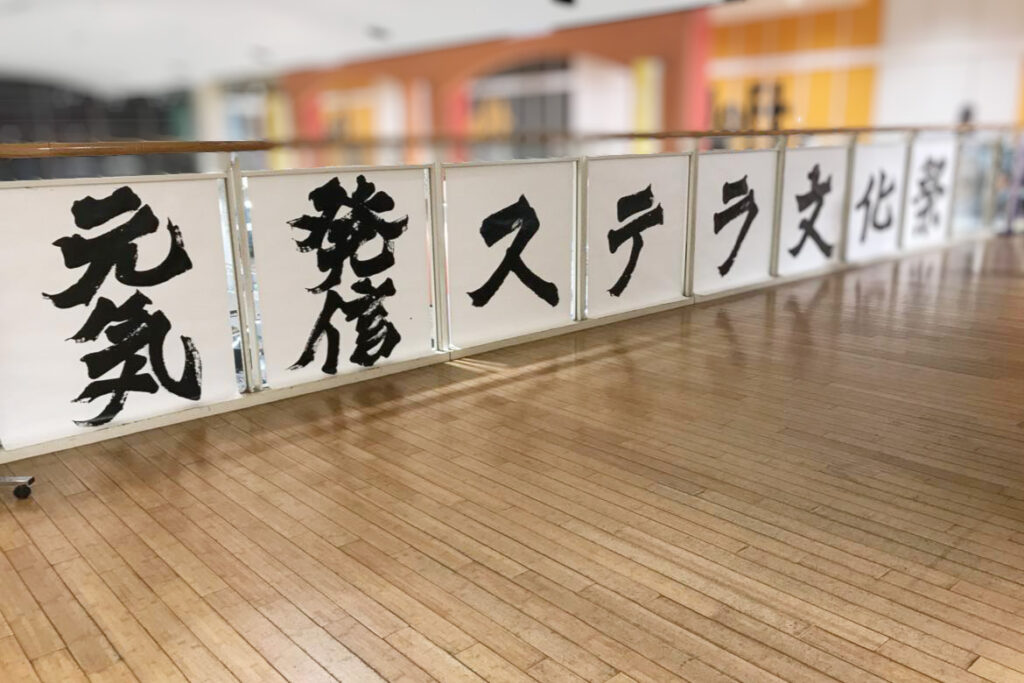 元気発信ステラ文化祭